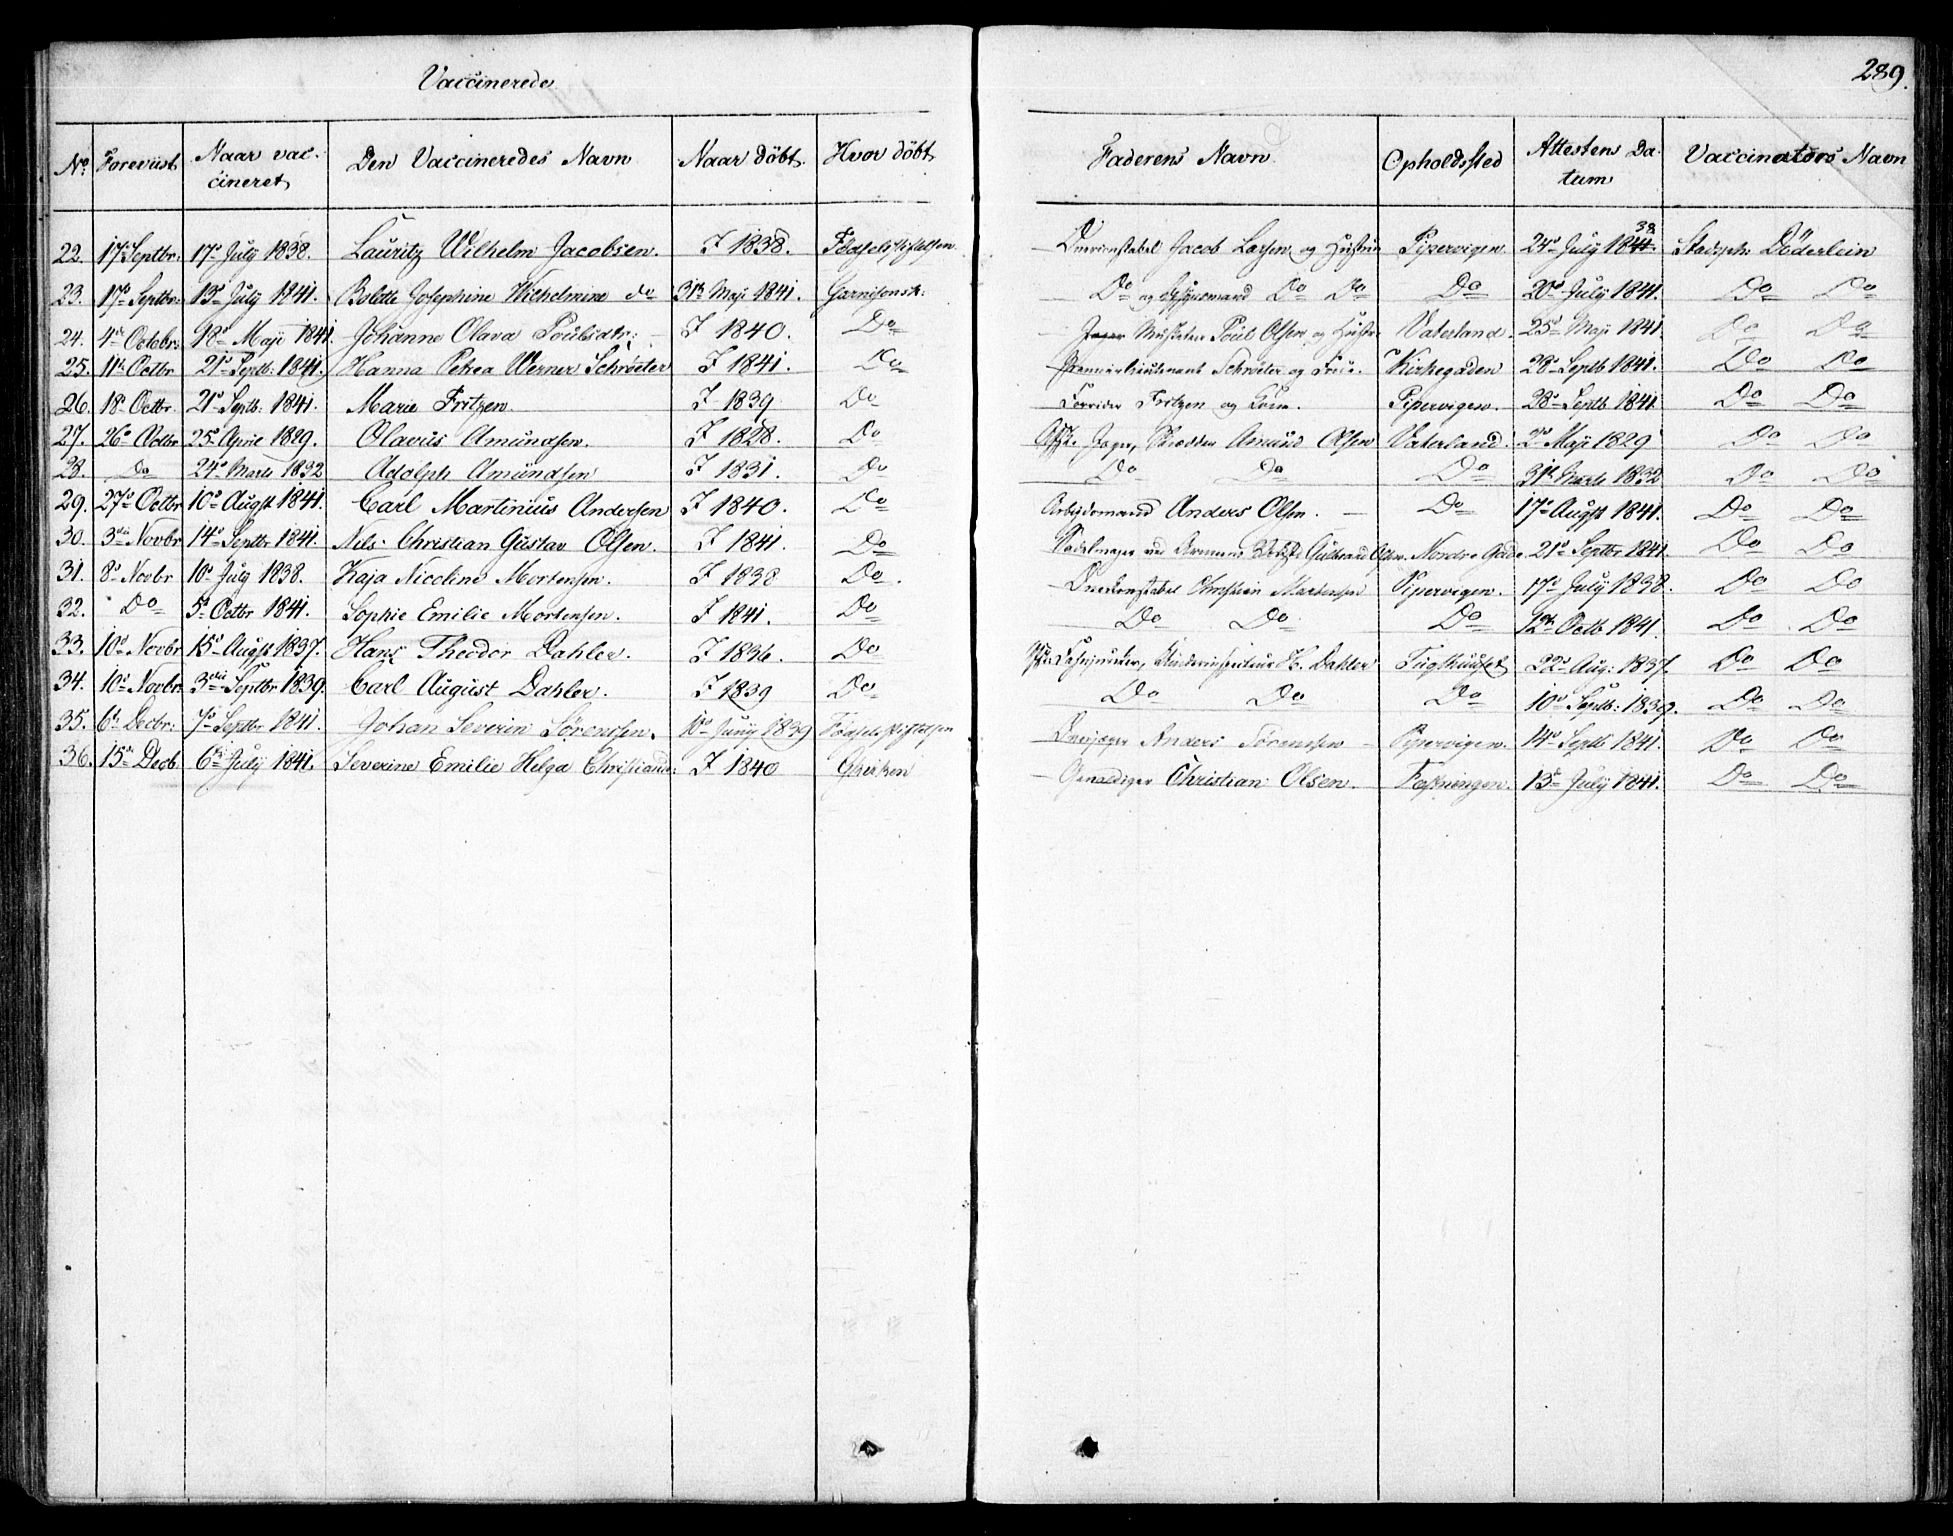 Vaccinerede
289.
No Foreviist Naar vaccineret Den Vaccineredes Navn Naar döbt Hvor döbt Faderens Navn Opholdssted Attestens Datum Vaccinators Navn
22. 17 Septbr: 17de July 1838. Lauritz Wilhelm Jacobsen. I 1838. Födselsstiftelsen. Jacob Larsen og Hustru Pipervigen. 24de July 1841 38 Stadsph: Döderlein
23. 17de Septbr: 13de July 1841. Bolette Josephine Wilhelmine do 31te Maji 1841. Garnisonsk: Do og Do Do Do 20de July 1841. Do Do
24. 4de Octobr: 18de Maji 1841. Johanne Olava Poulsdtr: I 1840. Do Musketer Poul Olsen og Hustru Vaterland. 25de Maji 1841. Do Do
25. 11te Octbr 21de Septb: 1841. Hanna Petrea Werner Schröeter I 1841. Do Premierlieutenant Schröeter og Frue. Kirkegaden 28de Septb 1841. Do Do
26. 18de Octbr. 21de Septb: 1841. Marie Fritzen. I 1839 Do Fritzen og Kone. Pipervigen. 28de Septb 1841. Do Do
27. 26de Octbr 25de April 1829. Olavus Amundsen. I 1828. Do Afsk. Jæger, Amund Olsen Vaterland. 2de Maji 1829 Do Do
28. Do 24de Marts 1832 Adolph Amundsen I 1831. Do Do Do Do 31te Marts 1832 Do Do
29. 27de Octbr 10de Augst 1841. Carl Martinius Andersen I 1840. Do Arbejdsmand Anders Olsen. Do 17de Augst 1841. Do Do
30. 3die Novbr 14de Septbr 1841. Nils Christian Gustav Olsen. I 1841. Do Sadelmager Gulbrand Olsen. Nordre Gade 21de Septbr 1841. Do Do
31. 8de Novbr 10de July 1838. Kaja Nicoline Mortensen. I 1838 Do. Christian Mortensen Pipervigen. 17de July 1838. Do Do
32. Do 5te Octbr 1841. Sophie Emilie Mortensen. I 1841. Do Do Do Do 12te Octb 1841. Do Do
33. 10de Novbr 15de Augst 1837. Hans Theodor Dahler. I 1836. Do H. Dahler Tugthuuset 22de Aug: 1837. Do Do
34. 10de Novbr 3die Septbr 1839. Carl August Dahler. I 1839 Do Do Do Do 10de Septb: 1839. Do Do
35. 6te Decbr: 7de Septbr 1841. Johan Severin Sörensen. 10de Juny 1839 Födselsstiftelsen Anders Sörensen Pipervigen. 14de Septb 1841. Do Do
36. 15de Decb. 6te July 1841. Severine Emilie Helga Christiands: I 1840 Gjerdsen Gevaldiger Christian Olsen. Fæstningen. 13de July 1841. Do Do